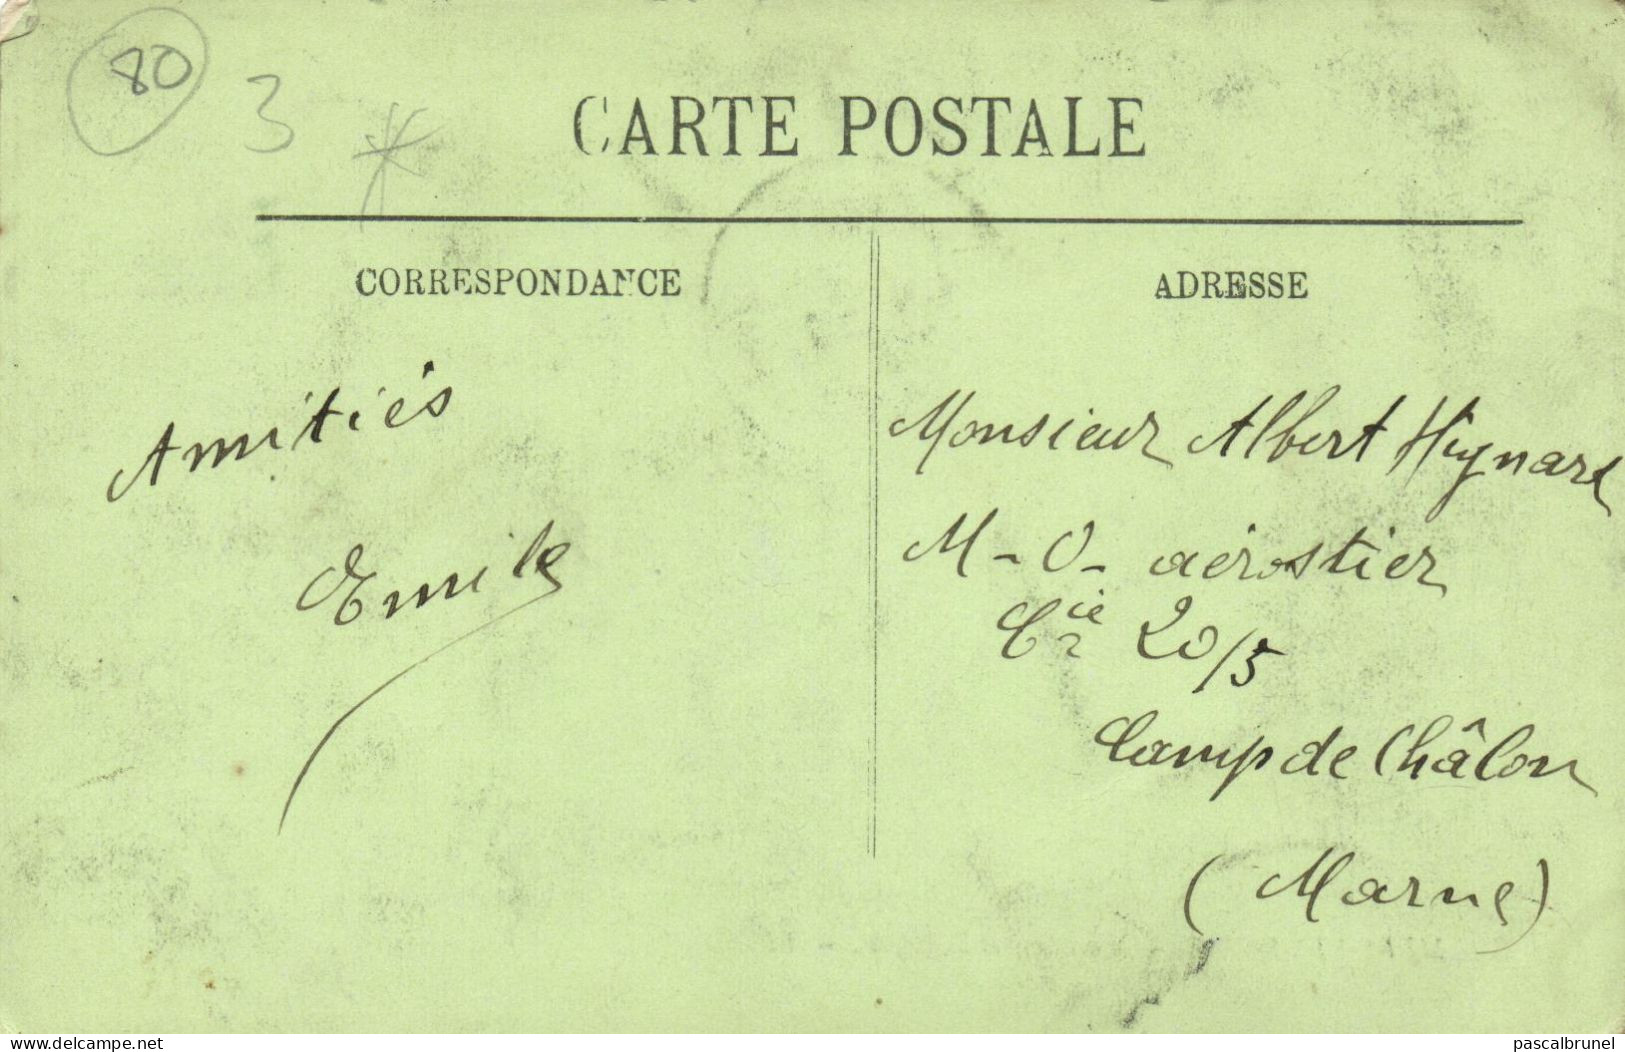 80
3
CARTE POSTALE
CORRESPONDANCE
ADRESSE
Amitiés
Emile
Monsieur Albert
M-O- aérostier
Cie 20/5
Camp de Châlon
(Marne)
www.delcampe.net
pascalbrunel